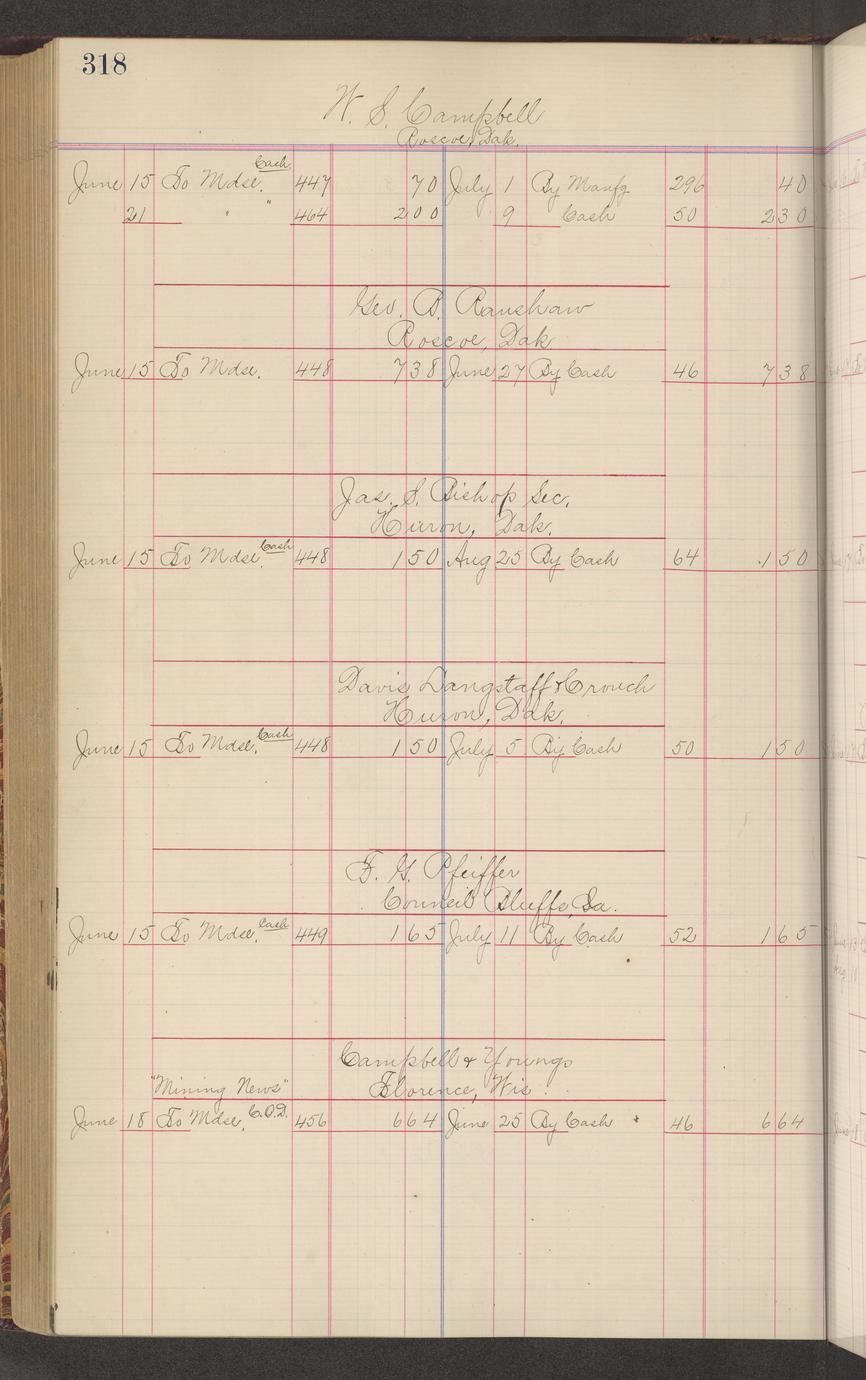 318
W. S. Campbell
Roscoe, Dak.
June 15 To Mdse. Cash 447 70 July 1 By Manfg 296 40
21 " " 464 200 9 Cash 50 230
Geo. B. Ranshaw
Roscoe, Dak
June 15 To Mdse. 448 738 June 27 By Cash 46 738
Jas. S. Bishop Sec.
Huron, Dak.
June 15 To Mdse. Cash 448 150 Aug 25 By Cash 64 150
Davis Langstaff & Crouch
Huron, Dak.
June 15 To Mdse. Cash 448 150 July 5 By Cash 50 150
F. G. Pfeiffer
Council Bluffs, Ia.
June 15 To Mdse. Cash 449 165 July 11 By Cash 52 165
Campbell & Youngs
"Mining News" Florence, Wis.
June 18 To Mdse. C.O.D. 456 664 June 25 By Cash 46 664